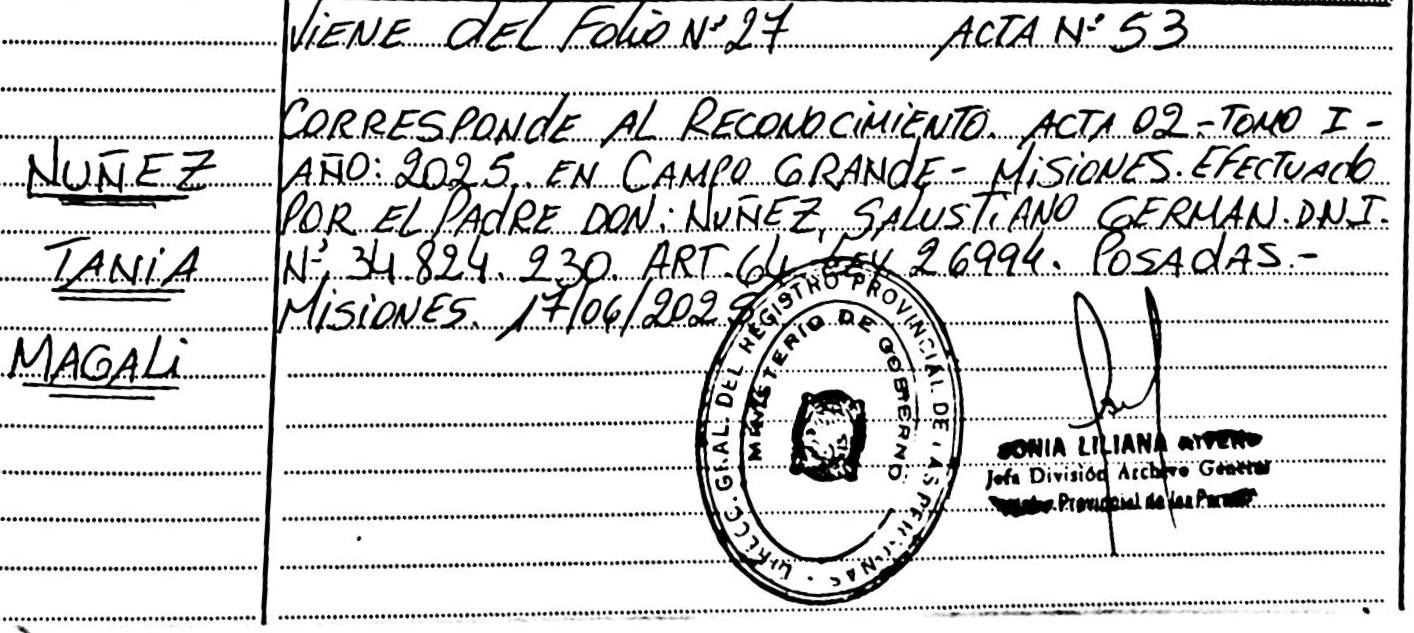 ViENE dEL Folio Nº 27 ACTA Nº 53
CORRESPONdE AL RECONOCIMIENTO. ACTA 02.-TOMO I -
NUÑEZ
AÑO: 2025. EN CAMPO GRANdE - MiSiONES. EFECTUAdo
POR EL PAdRE DON: NUÑEZ, SALUSTIANO GERMAN. D.N.I.
TANiA
Nº 34.824.230. ART. 64 LEY 26994. POSAdAS.-
MiSiONES. 17/06/2025
MAGALi
DIRECC. GRAL. DEL REGISTRO PROVINCIAL DE LAS PERSONAS
MINISTERIO DE GOBIERNO
SONIA LILIANA
Jefa División Archivo General
Provincial de las Personas